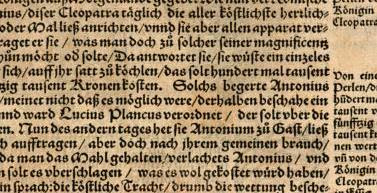 nius/diser Cleopatra täglich die aller köstlichste herrlich-
oder Mal ließ anrichten/vnnd sie aber allen apparat ver-
raget er sie/was man doch zu solcher seiner magnificentz
thün möcht oď solte/Da antwortet sie/sie wüste ein einzeles
sich/auff jhr satt zu köchlen/das solt hundert mal tausent
tzig tausent Kronen kosten. Solchs begerte Antonius
/meinet nicht daß es möglich were/derhalben beschahe ein
nnd ward Lucius Plancus verordnet/der solt vber die
en. Nun des andern tages het sie Antonium zu Gast/ließ
ch aufftragen/aber doch nach jhrem gemeinen brauch/
da man das Mahl gehalten/verlachets Antonius/vnd
n solt es vberschlagen/was es wol gekostet würd haben/
sprach: die köstliche Tracht/drumb die wettung besch
Königin
Cleopatra
Von eine
Perlen/di
hūdert m
tausent
fünfftzig
tausent k
nen wert
vn̄ von d
Königin